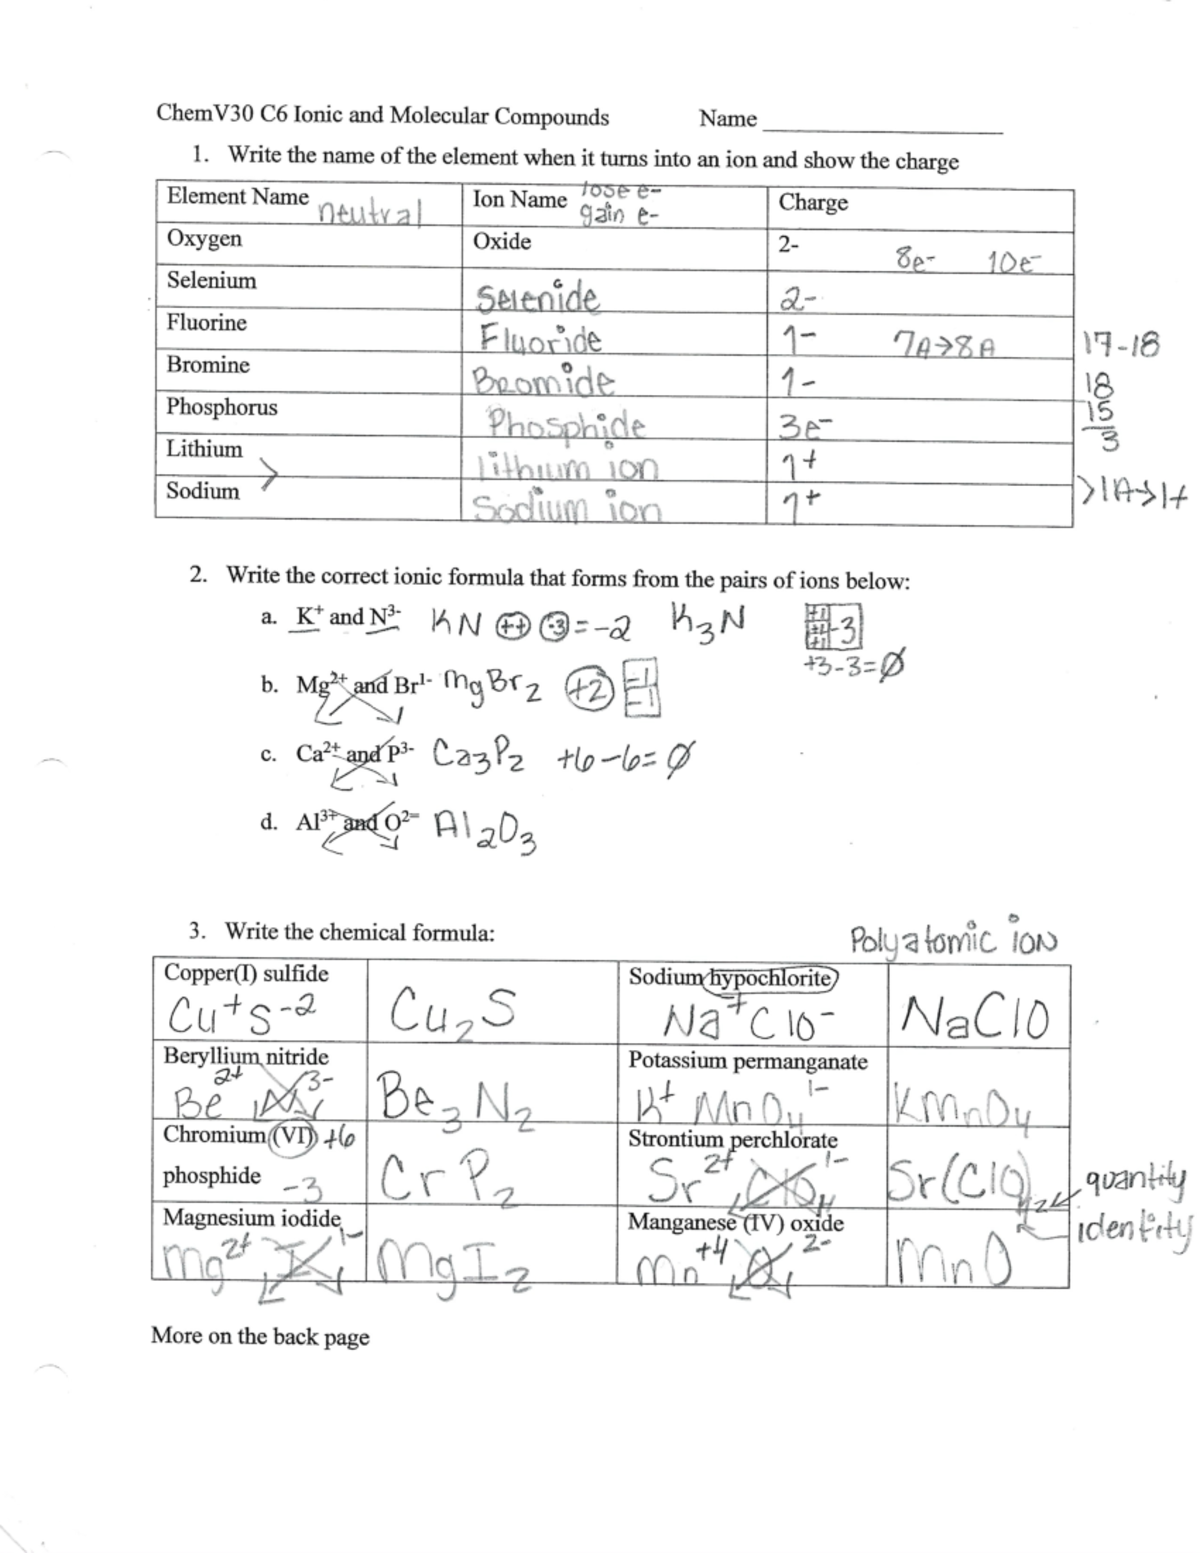 ChemV30 C6 Ionic and Molecular Compounds Name
1. Write the name of the element when it turns into an ion and show the charge
Element Name neutral Ion Name lose e- gain e- Charge
Oxygen Oxide 2- 8e- 10e-
Selenium Selenide 2-
Fluorine Fluoride 1- 7A→8A 17-18
Bromine Bromide 1- 18
Phosphorus Phosphide 3e- 15
3
Lithium lithium ion 1+
Sodium Sodium ion 1+ >1A→1+
2. Write the correct ionic formula that forms from the pairs of ions below:
a. K⁺ and N³⁻ KN ++ -3 =-2 K₃N +1 +1 +1 -3
+3-3=∅
b. Mg²⁺ and Br¹⁻ MgBr₂ +2 -1 -1
c. Ca²⁺ and P³⁻ Ca₃P₂ +6-6=∅
d. Al³⁺ and O²⁼ Al₂O₃
3. Write the chemical formula: Polyatomic ion
Copper(I) sulfide Sodium hypochlorite
Cu⁺S⁻² Cu₂S Na⁺ClO⁻ NaClO
Beryllium nitride Potassium permanganate
Be²⁺ N³⁻ Be₃N₂ K⁺ MnO₄¹⁻ KMnO₄
Chromium (VI) +6 Strontium perchlorate
phosphide -3 CrP₂ Sr²⁺ ClO₄¹⁻ Sr(ClO₄)₂ quantity
identity
Magnesium iodide Manganese (IV) oxide
Mg²⁺ I¹⁻ MgI₂ Mn⁺⁴ O²⁻ MnO
More on the back page